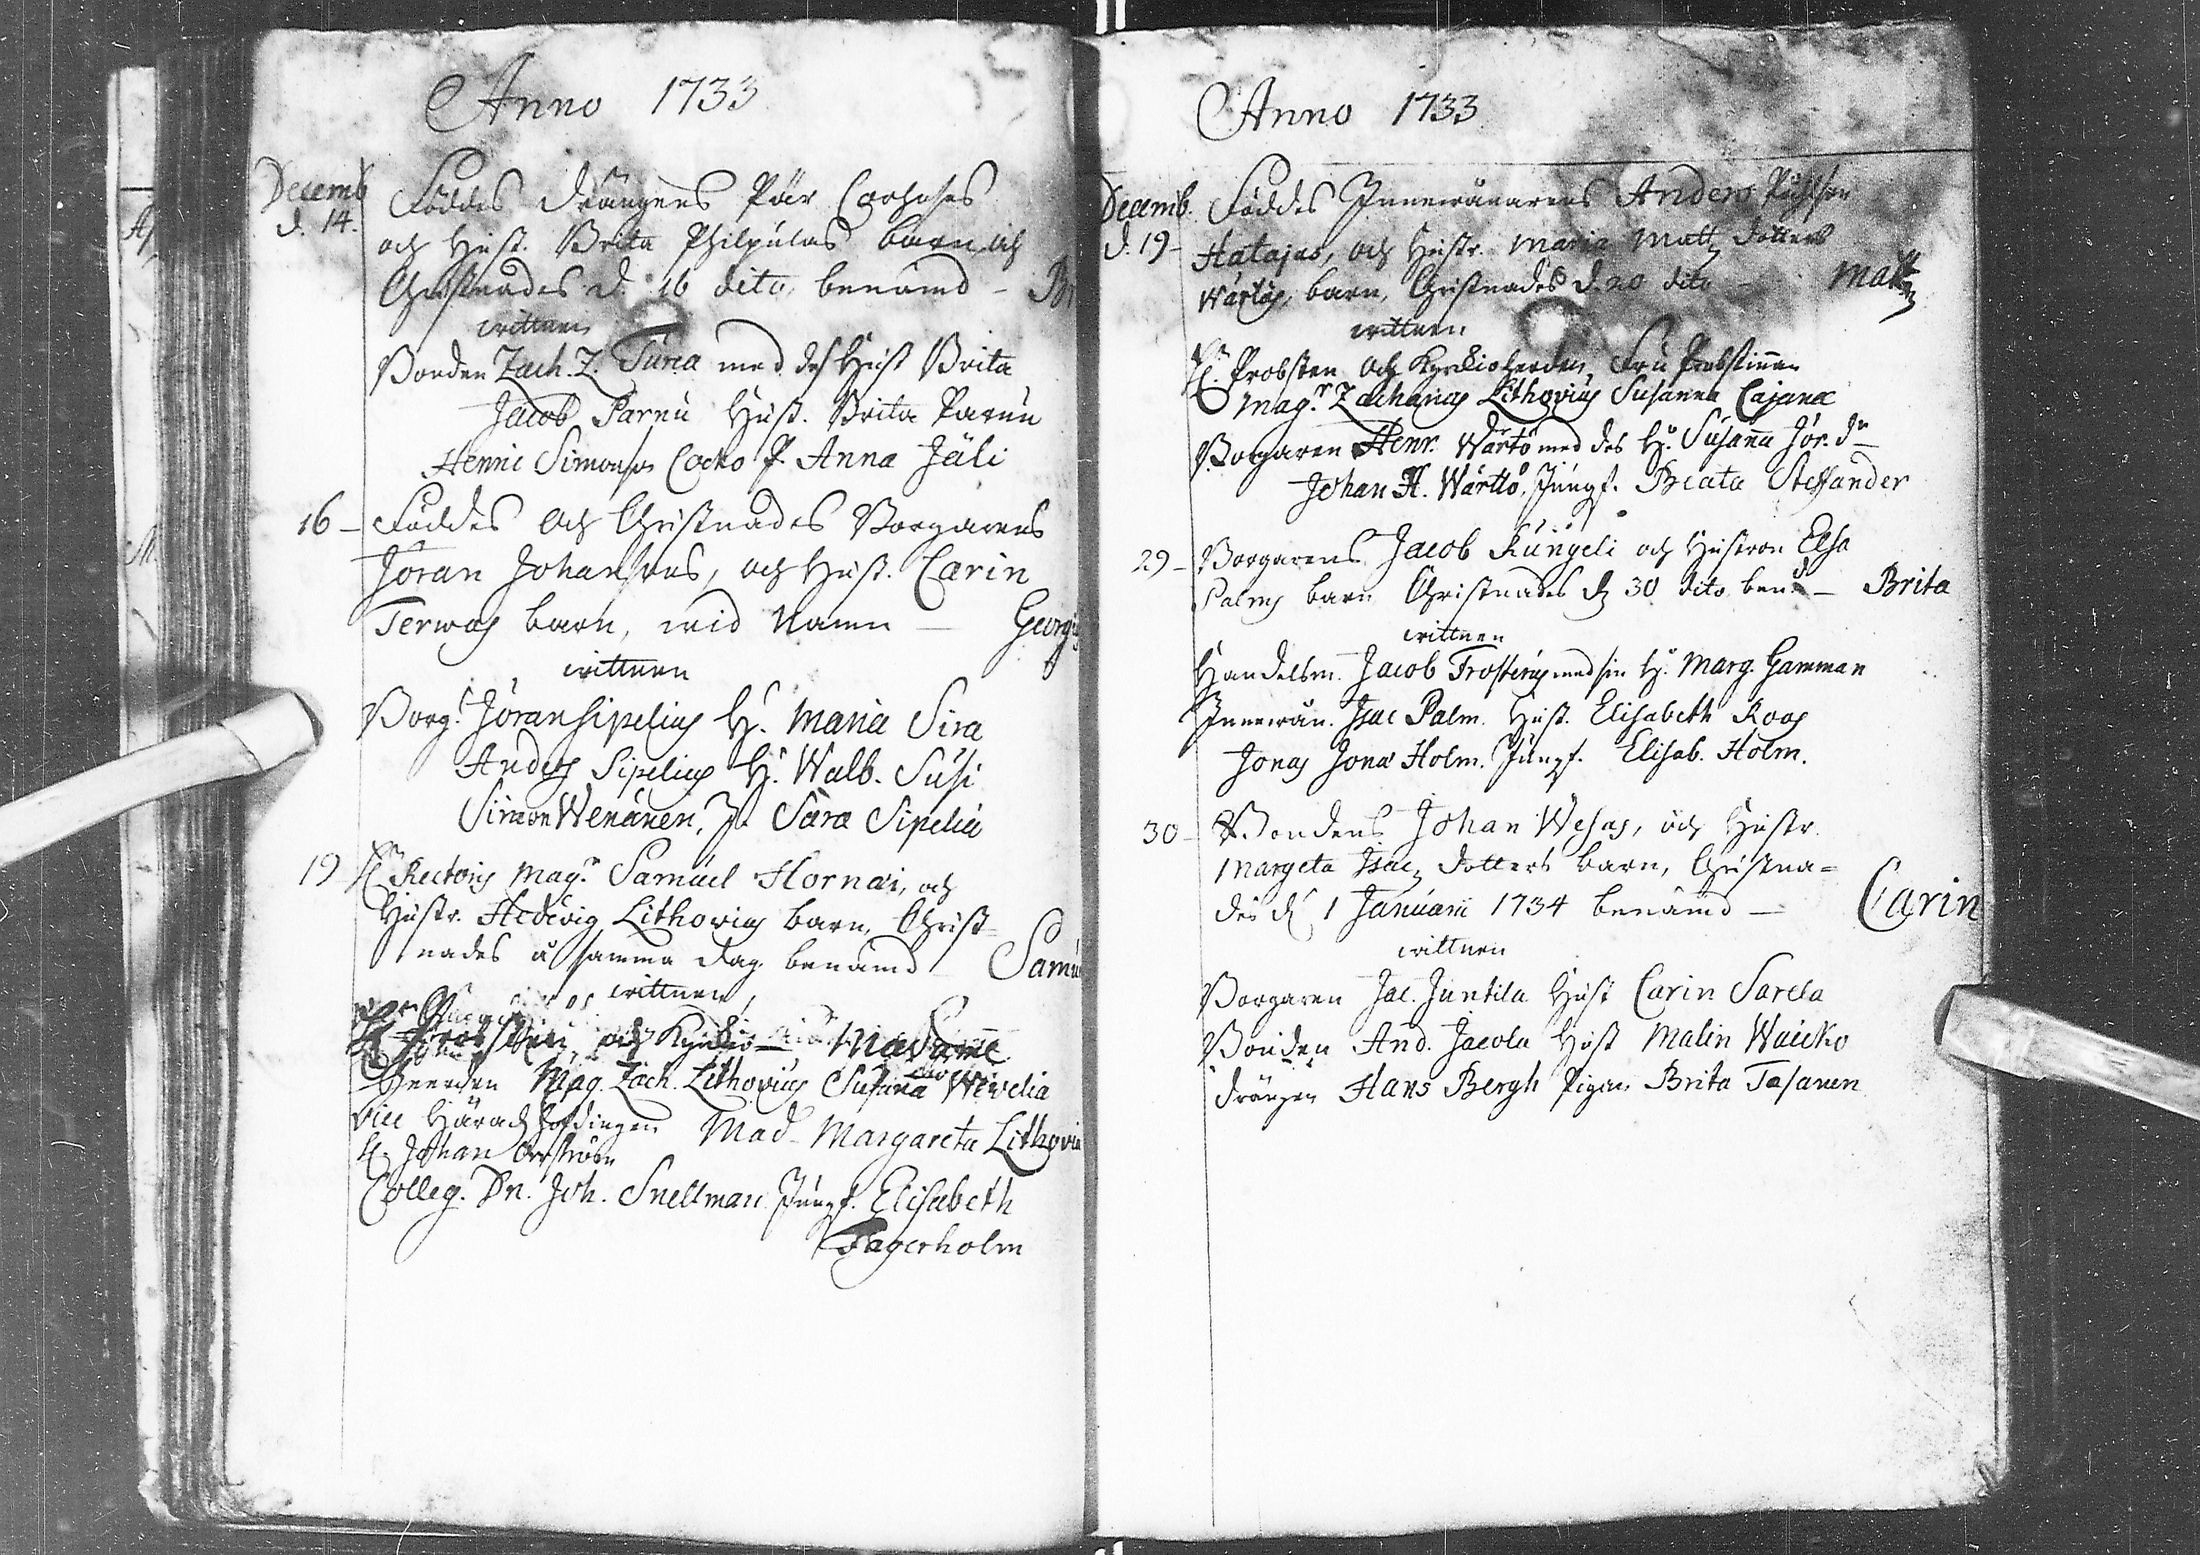 Anno 1733
Decemb
d. 14.
Föddes Drängens Pär
och Hust. Brita Philpulas barn och
Christnades d. 16 dito, benämd –
wittnen
Bonden Zach. Z. Turia med des Hust Brita
Jacob Parnu Hust. Brita Parnu
Henric Simonss. Cocko P. Anna Jäli
16 – Föddes och Christnades Borgarens
Jöran Johanssons, och Hust. Carin
Terwas barn, wid Namn – Georgius
wittnen
Borg. Jöran Sipelius H. Maria Sira
Anders Sipelius H. Walb. Susi
Simon Wenänen, J. Sara Sipelia
19 H. Rectoris Mag.r Samuel Hornæi, och
Hustr. Hedewig Lithovius barn, Christ=
nades å samma dag benämd Samuel
wittnen
H. Probsten, och Kyrkio Madame
Heerden Mag. Zach. Lithovius Susanna Wewelia
Vice Häradzhöfdingen Mad. Margareta Lithovia
H. Johan
Colleg. Dn. Joh. Snellman Jungf. Elisabeth
Fagerholm
Anno 1733
Decemb.
d. 19 –
Föddes Innewånarens Anders
Hatajas, och Hustr. Maria Matz dotters
Wartus, barn, Christnades d. 20 dito – Matz
wittnen
H. Probsten och Kyrkioherden, Fru Probstinnan
Mag.r Zacharias Lithovius Susanna Cajana
Borgaren Henr. Wärtö med des H. Susanna Jör. dr
Johan H. Wärttö, Jungf. Beata Steffander
29 – Borgarens Jacob Kungeli och Hustron Elsa
Palms barn Christnades d. 30 dito ben:d – Brita
wittnen
Handelsm. Jacob Frosterus med sin H. Marg. Gamman
Innewån. Isac Palm. Hust. Elisabeth Roos
Jonas Jonæ Holm. Jungf. Elisab. Holm.
30 – Bondens Johan Wesas, och Hustr.
Margeta Isacz dotters barn, Christna=
des d. 1 Januarii 1734 benämd – Carin
wittnen
Borgaren Jac. Juntila Hust Carin Sarela
Bonden And. Jacola Hust Malin Waicko
Drängen Hans Bergh Pigan Brita Tasanen